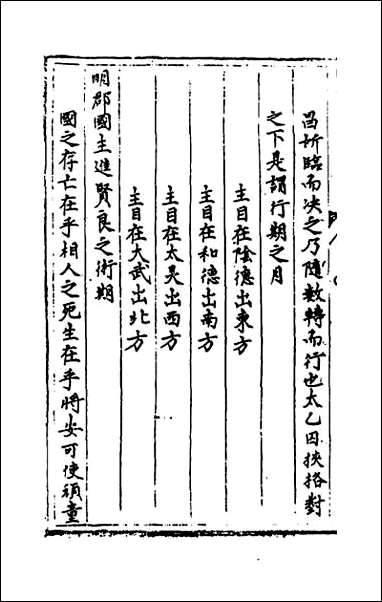 昌所臨而決之乃隨數轉而行也太乙因挾格對
之下是謂行期之月
主目在陰德出東方
主目在和德出南方
主目在太炅出西方
主目在大武出北方
明郡國主進賢良之術期
國之存亡在乎相人之死生在乎將安可使頑童